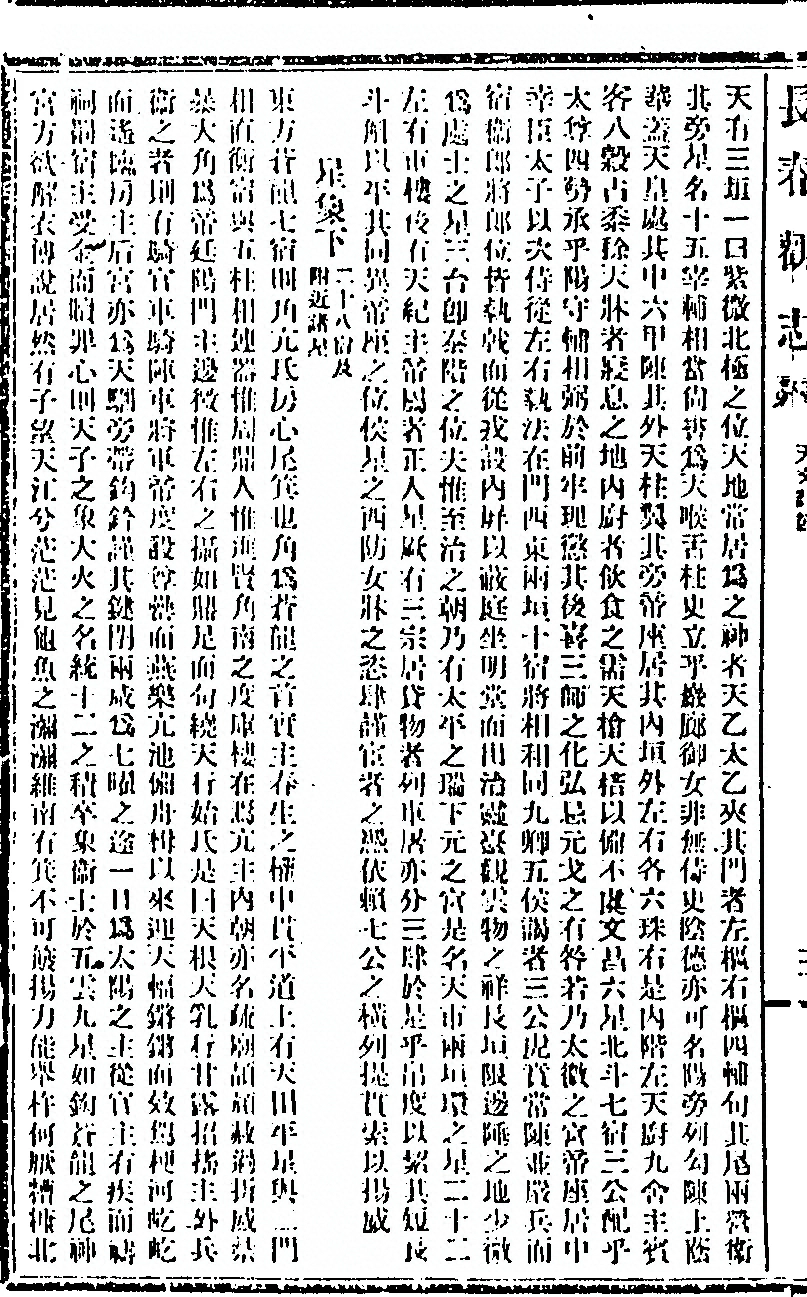 天有三垣一曰紫微北極之位天地常居為之神者天乙太乙夾其門者左樞右樞四輔句其尾兩營衛
其旁星名十五宰輔相當尚書為天喉舌柱史立乎巖廊御女非無侍史陰德亦可名陽旁列勾陳上蔭
華蓋天皇處其中六甲陳其外天柱翼其旁帝座居其內垣外左右各六珠右是內階左天廚九舍主賓
客八穀占黍稌天牀者寢息之地內廚者飲食之需天槍天棓以備不虞文昌六星北斗七宿三公配乎
太尊四勢承乎陽守輔相弼於前牢理懲其後喜三師之化弘忌元戈之有咎若乃太微之宮帝座居中
幸臣太子以次侍從左右執法在門西東兩垣十宿將相和同九卿五侯謁者三公虎賁常陳並嚴兵而
宿衛郎將郎位皆執戟而從戎設內屏以蔽庭坐明堂而出治靈臺觀雲物之祥長垣限邊陲之地少微
為處士之星三台卽泰階之位夫惟至治之朝乃有太平之瑞下元之宮是名天市兩垣環之星二十二
左右市樓後有天紀主帝屬者正人星厥有三宗居貨物者列車屠亦分三肆於是乎帛度以絜其短長
斗斛以平其同異帝座之位侯星之西防女牀之恣肆謹宦者之憑依賴七公之橫列提貫索以揚威
星象下 二十八宿及
附近諸星
東方蒼龍七宿則角亢氐房心尾箕也角為蒼龍之首實主春生之權中貫平道上有天田平星與二門
相直衡宮與五柱相連器惟周鼎人惟進賢角南之度庫樓在焉亢主內朝亦名疏廟訟頑赦過折威禁
暴大角為帝廷陽門主邊徼惟左右之攝如鼎足而句繞天行始氐是曰天根天乳行甘露招搖主外兵
衛之者則有騎官車騎陣車將軍帝度設尊熱而燕樂亢池備舟楫以來迎天幅鏘鏘而效駕梗河屹屹
而遙臨房主后宮亦為天駟旁帶鉤鈐謹其鍵閉兩咸為七曜之途一日為太陽之主從官主有疾而禱
祠罰宿主受金而贖罪心則天子之象大火之名統十二之積卒象衛士於五雲九星如鉤蒼龍之尾神
宮方欲解衣傅說居然有子望天江兮茫茫見龜魚之瀰瀰維南有箕不可簸揚力能舉杵何厭糟糠北